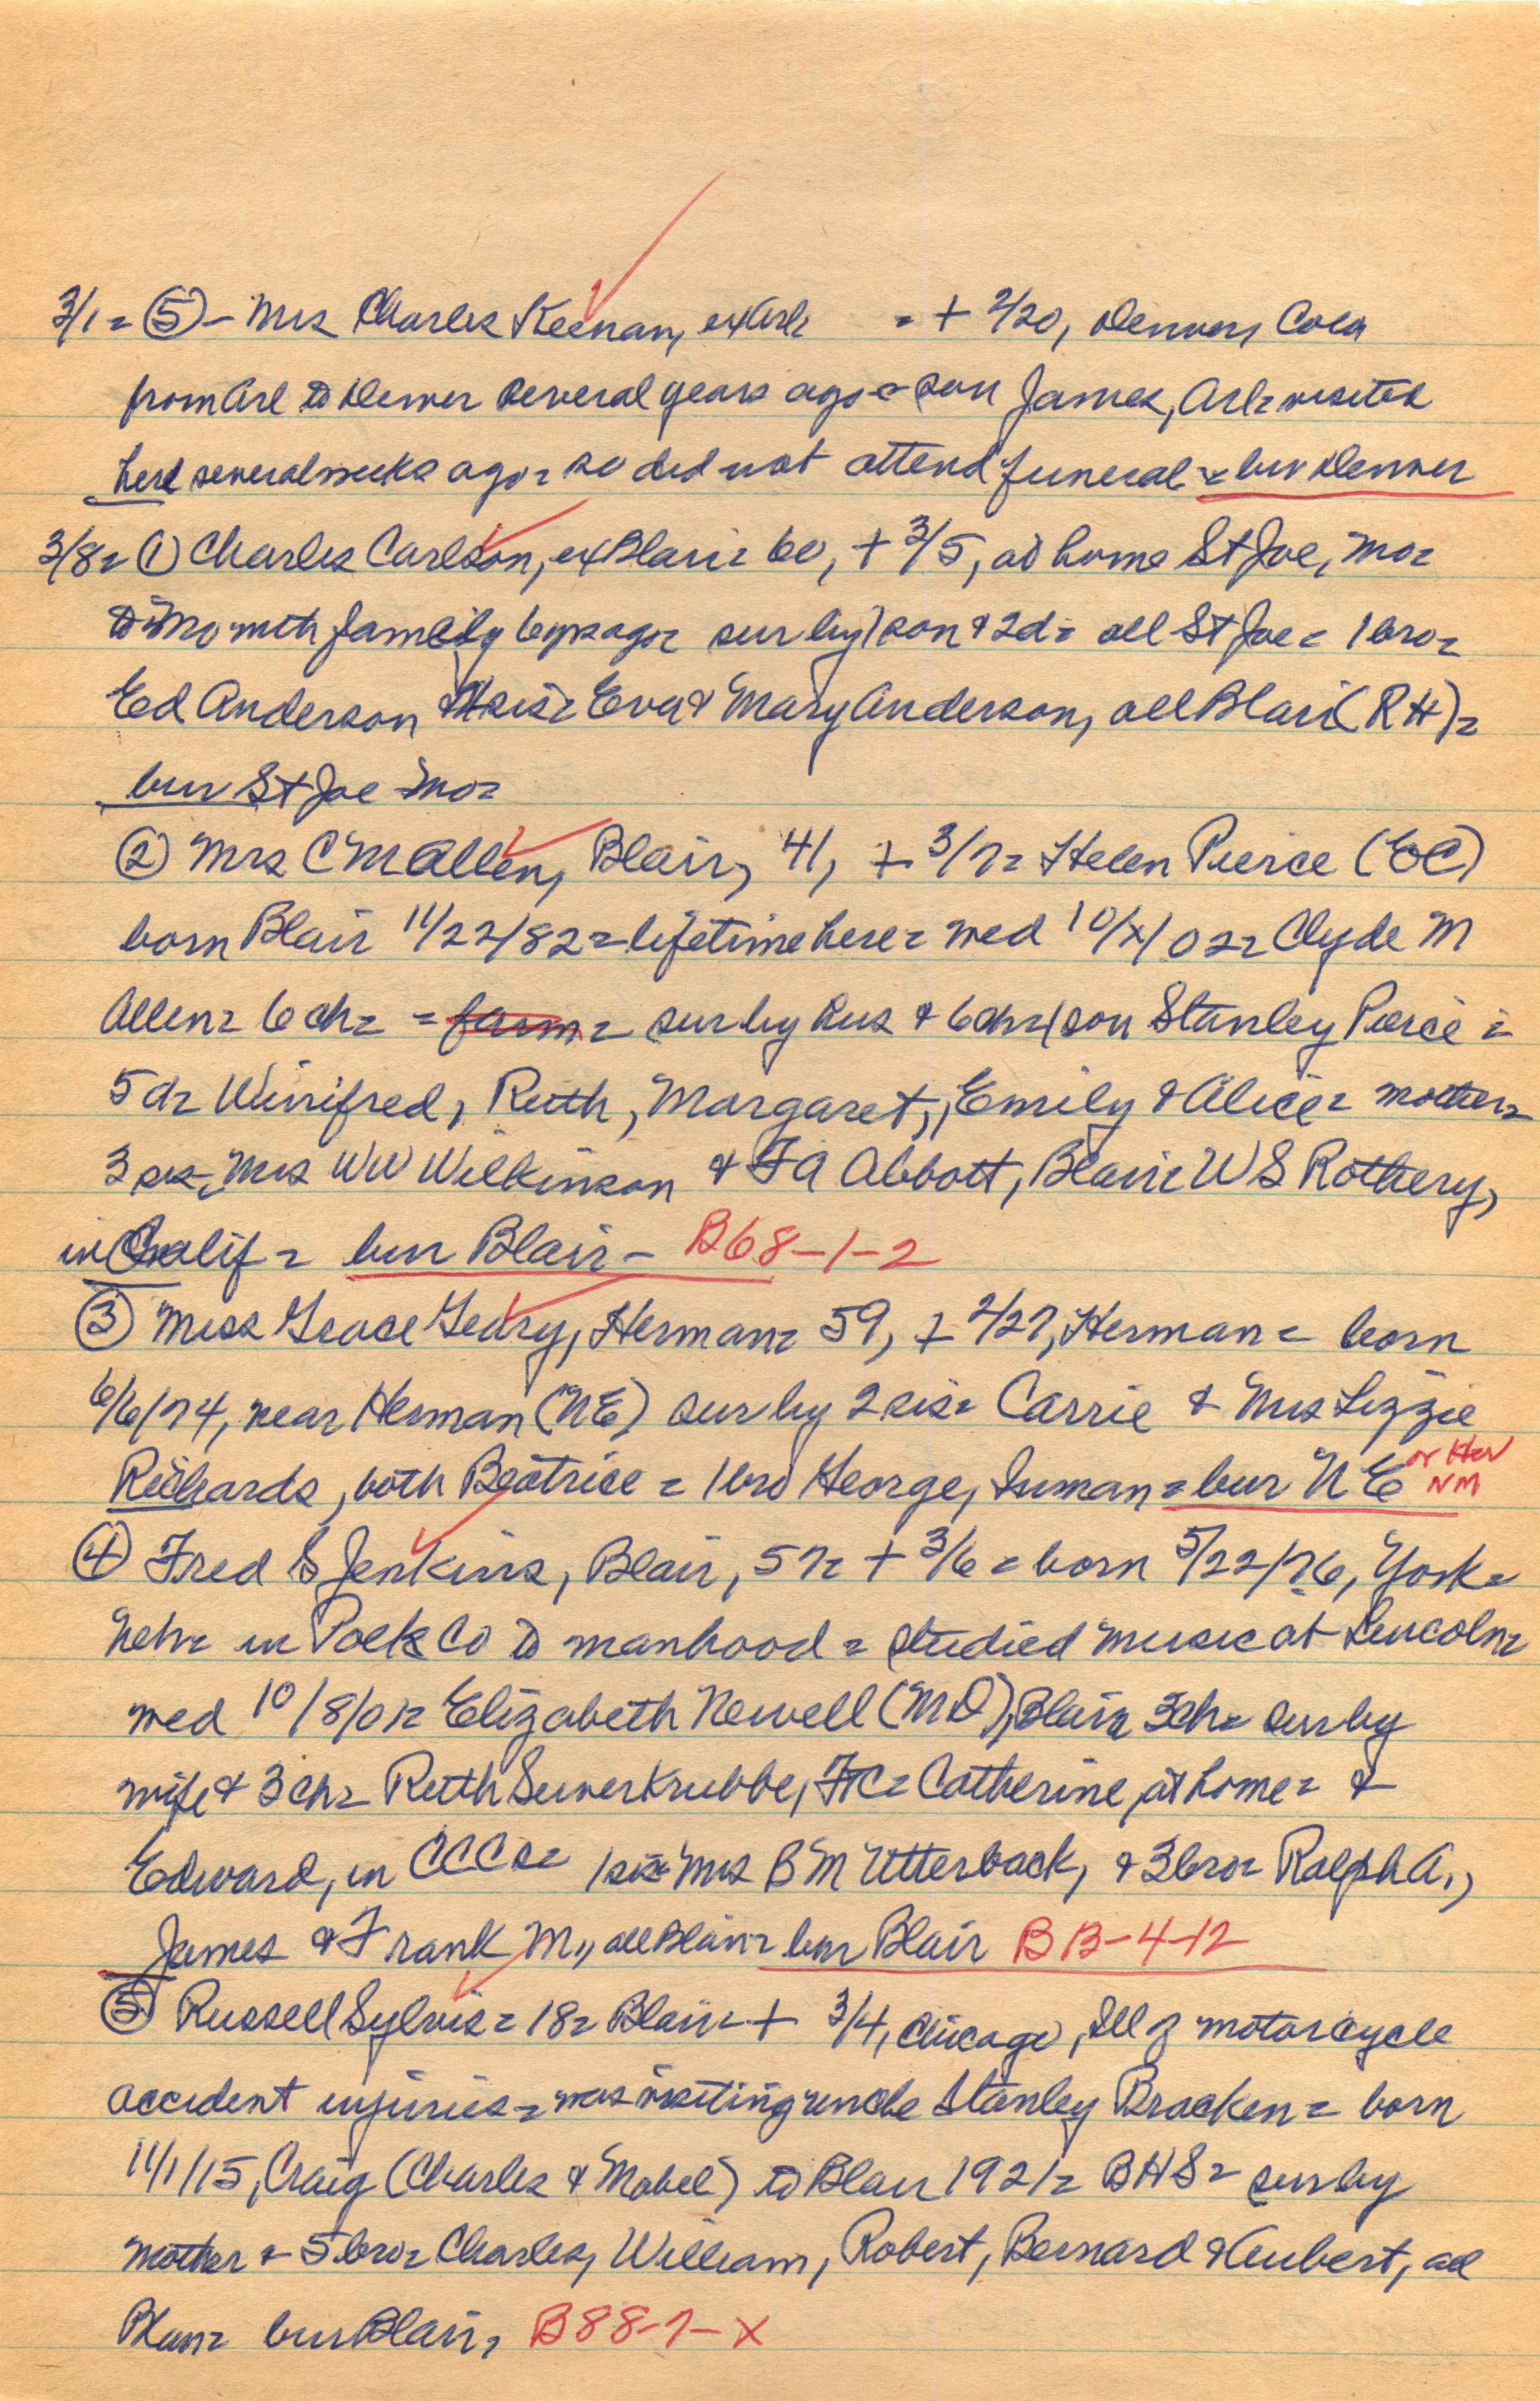 3/1 = ⑤ - Mrs Charles Keenan, exArl = + 2/20, Denver, Colo
from Arl to Denver several years ago = son James, Arl = visited
here several weeks ago = so did not attend funeral = bur Denver
3/8 = ① Charles Carlson, exBlair = 60, + 3/5, at home St Joe, Mo =
to Mo with family 6 yrs ago = sur by 1 son & 2d = all St Joe = 1 bro =
Ed Anderson & sis = Eva & Mary Anderson, all Blair (RH) =
bur St Joe Mo =
② Mrs C M Allen, Blair, 41, + 3/7 = Helen Pierce (EC)
born Blair 11/22/82 = lifetime here = wed 10/x/02 = Clyde M
Allen = 6 ch = = farm = sur by hus & 6 ch = 1 son Stanley Pierce =
5 d = Winifred, Ruth, Margaret, Emily & Alice = mother =
3 sis = Mrs WW Wilkinson & FA Abbott, Blair = W S Rothery,
in Calif = bur Blair - B68-1-2
③ Miss Grace Geary, Herman = 59, + 2/27, Herman = born
6/6/74, near Herman (NE) sur by 2 sis = Carrie & Mrs Lizzie
Richards, both Beatrice = 1 bro George, Inman = bur NE or Her
NM
④ Fred S Jenkins, Blair, 57 = + 3/6 = born 5/22/76, York =
Neb = in Polk Co to manhood = studied music at Lincoln =
wed 10/8/01 = Elizabeth Newell (MD), Blair = 3 ch = sur by
wife & 3 ch = Ruth Suverkrubbe, FtC = Catherine, at home = &
Edward, in CCCs = 1 sis = Mrs B M Utterback, & 3 bro = Ralph A.,
James & Frank M., all Blair = bur Blair B B-4-12
⑤ Russell Sylvis = 18 = Blair = + 3/4, Chicago, Ill of motorcycle
accident injuries = was visiting uncle Stanley Bracken = born
11/1/15, Craig (Charles & Mabel) to Blair 1921 = BHS = sur by
mother & 5 bro = Charles, William, Robert, Bernard & Hubert, all
Blair = bur Blair, B88-7-X